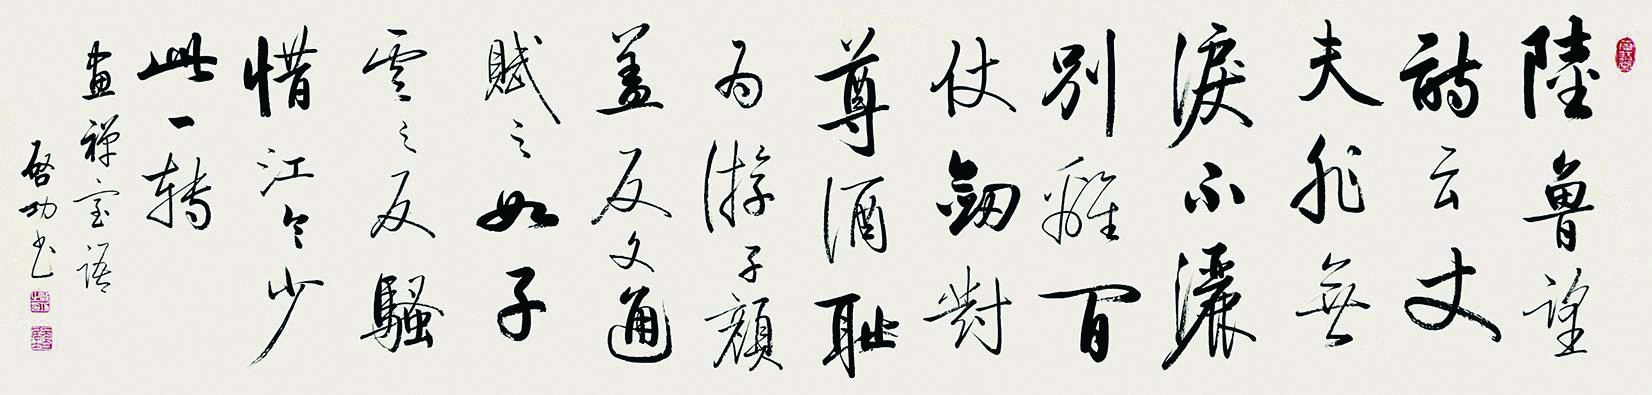 陸魯望
詩云丈
夫非無
淚不灑
別離間
仗劍對
尊酒恥
為游子顏
蓋反文通
賦之如子
雲之反騷
惜江令少
此一轉
畫禪室語
啟功書